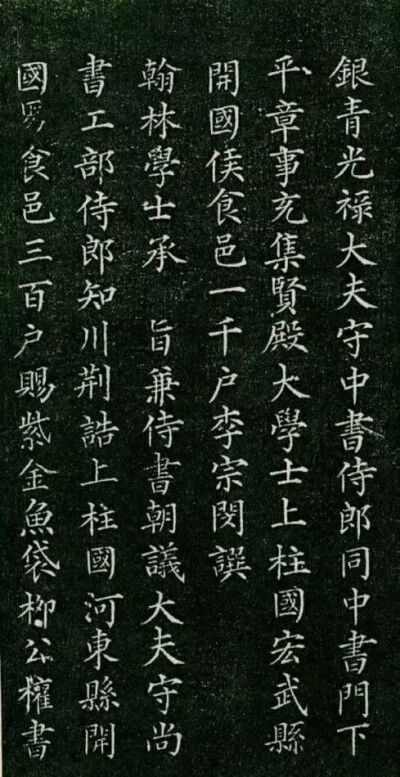 銀青光祿大夫守中書侍郎同中書門下
平章事充集賢殿大學士上柱國宏武縣
開國侯食邑一千戶李宗閔譔
翰林學士承旨兼侍書朝議大夫守尚
書工部侍郎知川荆誥上柱國河東縣開
國男食邑三百戶賜紫金魚袋柳公權書